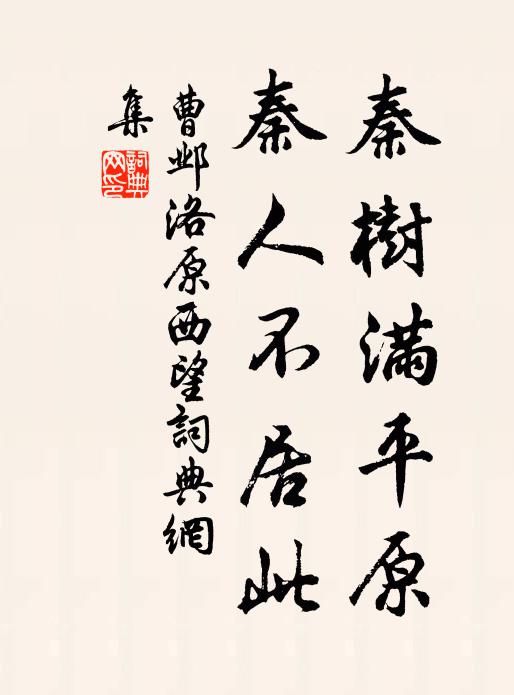 秦樹滿平原
秦人不居此
曹鄴洛原西望詞典網
集
詞典
网印